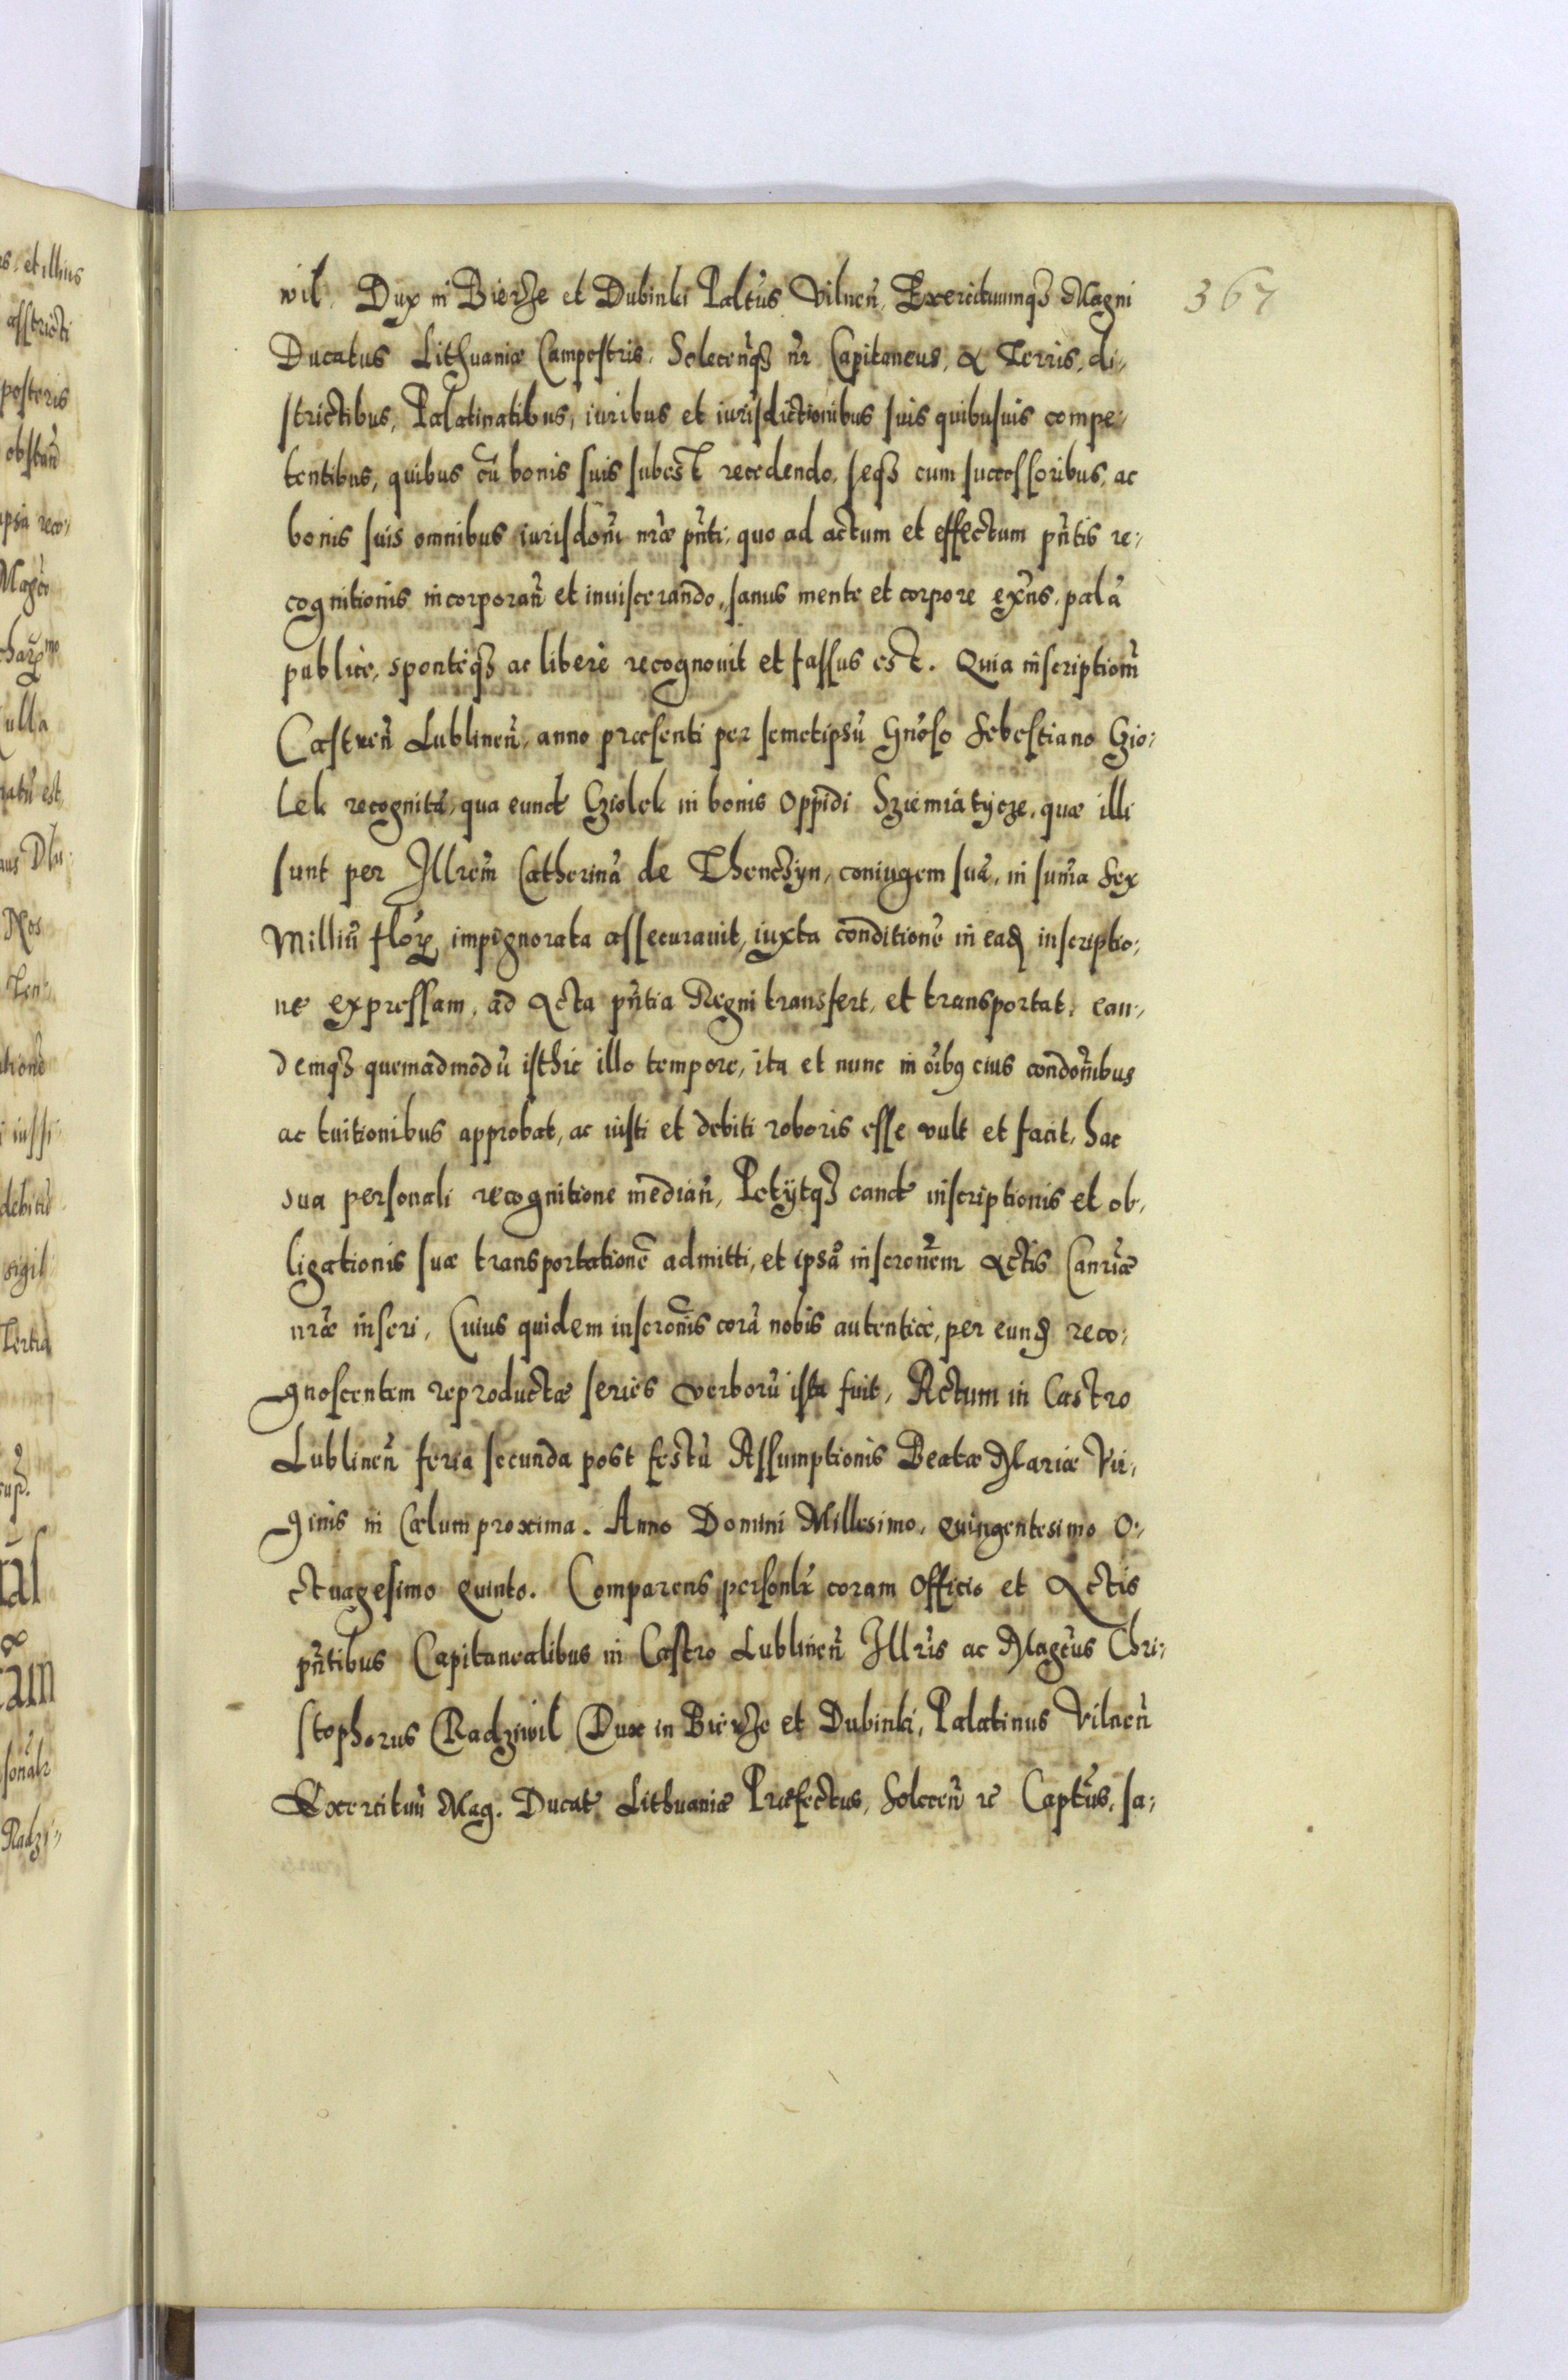 367
wil, Dux in Bierże et Dubinki Paltus Vilnen̄, Exercituumq3 Magni
Ducatus Lithuaniæ Campestris, Solecen̄q3 nr̄ Capitaneus, A Terris, di-
strictibus, Palatinatibus, iuribus et iurisdictionibus suis quibusuis compe-
tentibus, quibus cū bonis suis subest recedendo, seq3 cum successoribus, ac
bonis suis omnibus iurisdoni nr̄æ pn̄ti, quo ad actum et effectum pn̄tis re-
cognitionis incorporan̄ et inuiscerando, sanus mente et corpore exn̄s, palā
publice, sponteq3 ac libere recognouit et fassus est. Quia inscriptionē
Castren̄ Lublinen̄, anno præsenti per semetipsū Gnōso Sebestiano Gio-
lek recognitā, qua eund Giolek in bonis Oppidi Sziemiatycze, quæ illi
sunt per Illrem Catherinā de Thenczyn, coniugem suā, in sum̄a Sex
Milliū flor impignorata assecurauit, iuxta conditionē in ead inscriptio-
ne expressam, ad Acta pn̄tia Regni transfert, et transportat, ean-
demq3 quemadmodū isthic illo tempore, ita et nunc in oīb9 eius condōnibus
ac tuitionibus approbat, ac iusti et debiti roboris esse vult et facit, hac
sua personali recognitione median̄, Petijtq3 eand inscriptionis et ob-
ligationis suæ transportationē admitti, et ipsā inscronem Actis Canr̄iæ
nr̄æ inseri, Cuius quidem inscrōnis corā nobis autentice, per eund reco-
gnoscentem reproductæ series verborū ista fuit, Actum in Castro
Lublinen̄ feria secunda post festū Assumptionis Beatæ Mariæ Vir-
ginis in Cælum proxima. Anno Domini Millesimo, quingentesimo O-
ctuagesimo Quinto. Comparens personlr̄ coram Officio et Actis
pn̄tibus Capitanealibus in Castro Lublinen̄ Illr̄is ac Magcus Chri-
stophorus Radziwil Dux in Bierże et Dubinki, Palatinus Vilnen̄
Exercituū Mag. Ducat Lithuaniæ Præfectus, Solecen̄ rc Captus, sa-